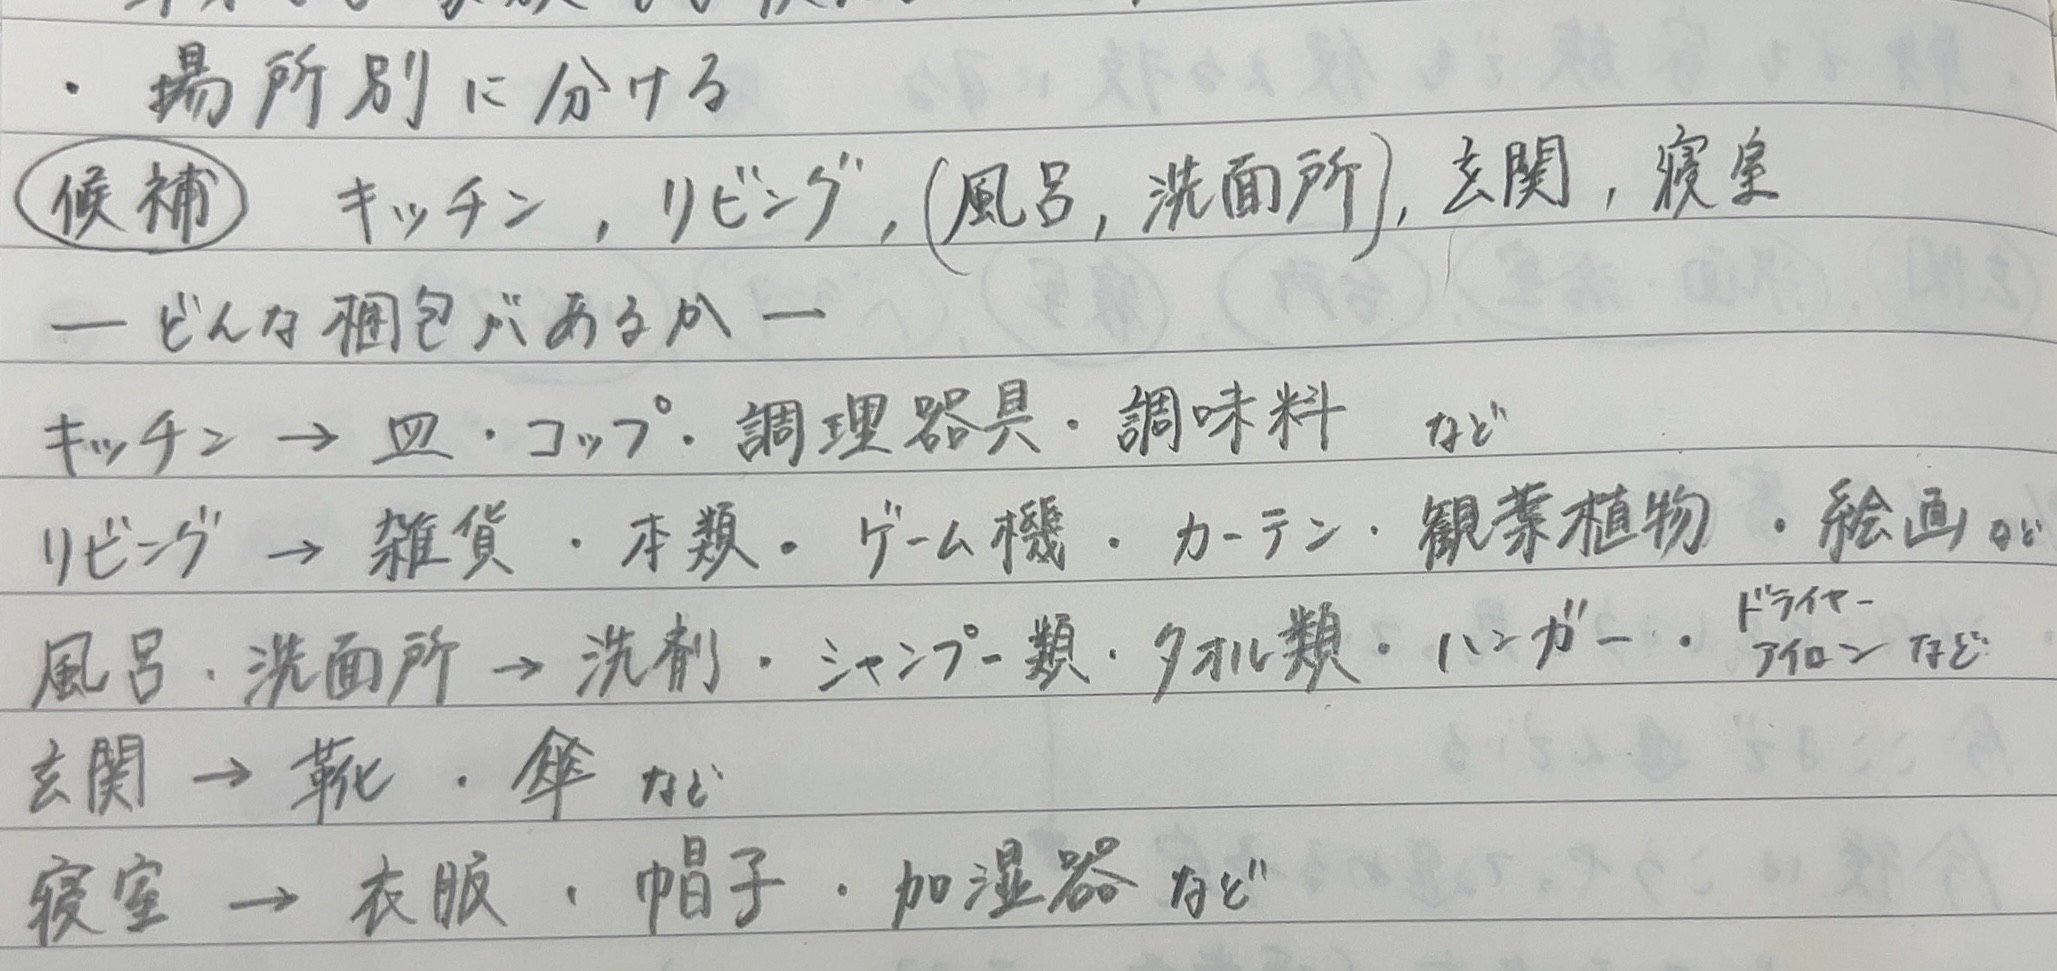 ・場所別に分ける
候補 キッチン, リビング, (風呂, 洗面所), 玄関, 寝室
ー どんな梱包があるか ー
キッチン → 皿・コップ・調理器具・調味料 など
リビング → 雑貨・本類・ゲーム機・カーテン・観葉植物・絵画 など
風呂・洗面所 → 洗剤・シャンプー類・タオル類・ハンガー・ドライヤー アイロン など
玄関 → 靴・傘 など
寝室 → 衣服・帽子・加湿器 など